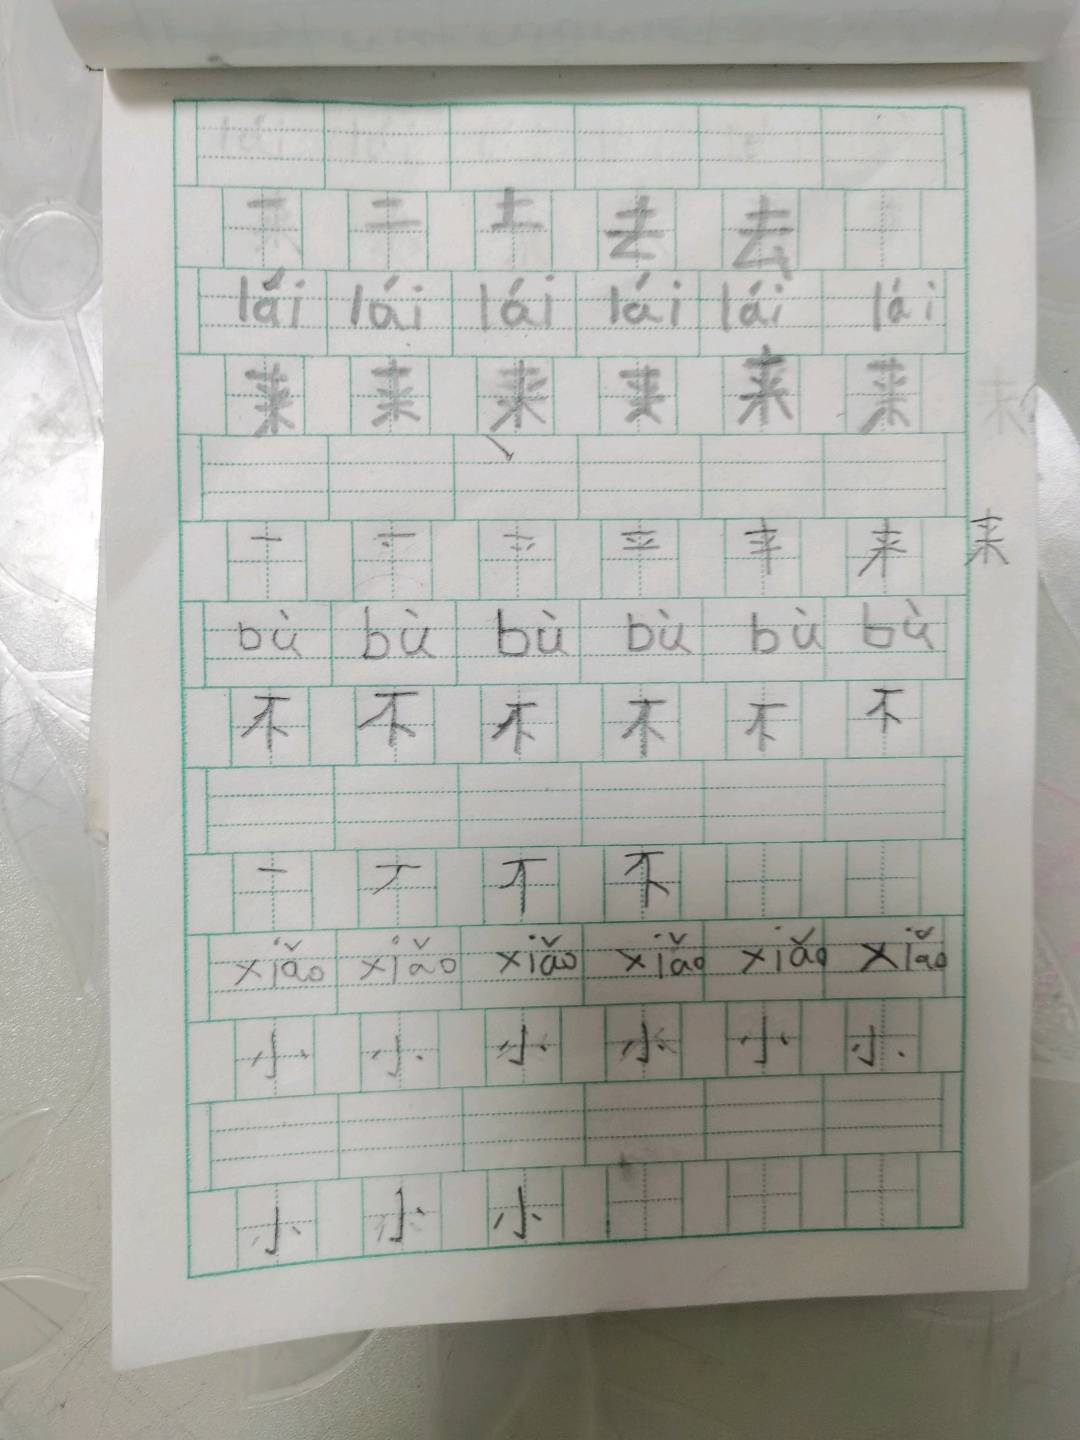 一 二 土 去 去
lái lái lái lái lái lái
来 来 来 来 来 来
一 来 来
bù bù bù bù bù bù
不 不 不 不 不 不
一 不
xiǎo xiǎo xiǎo xiǎo xiǎo xiǎo
小 小 小 小 小 小
小 小 小